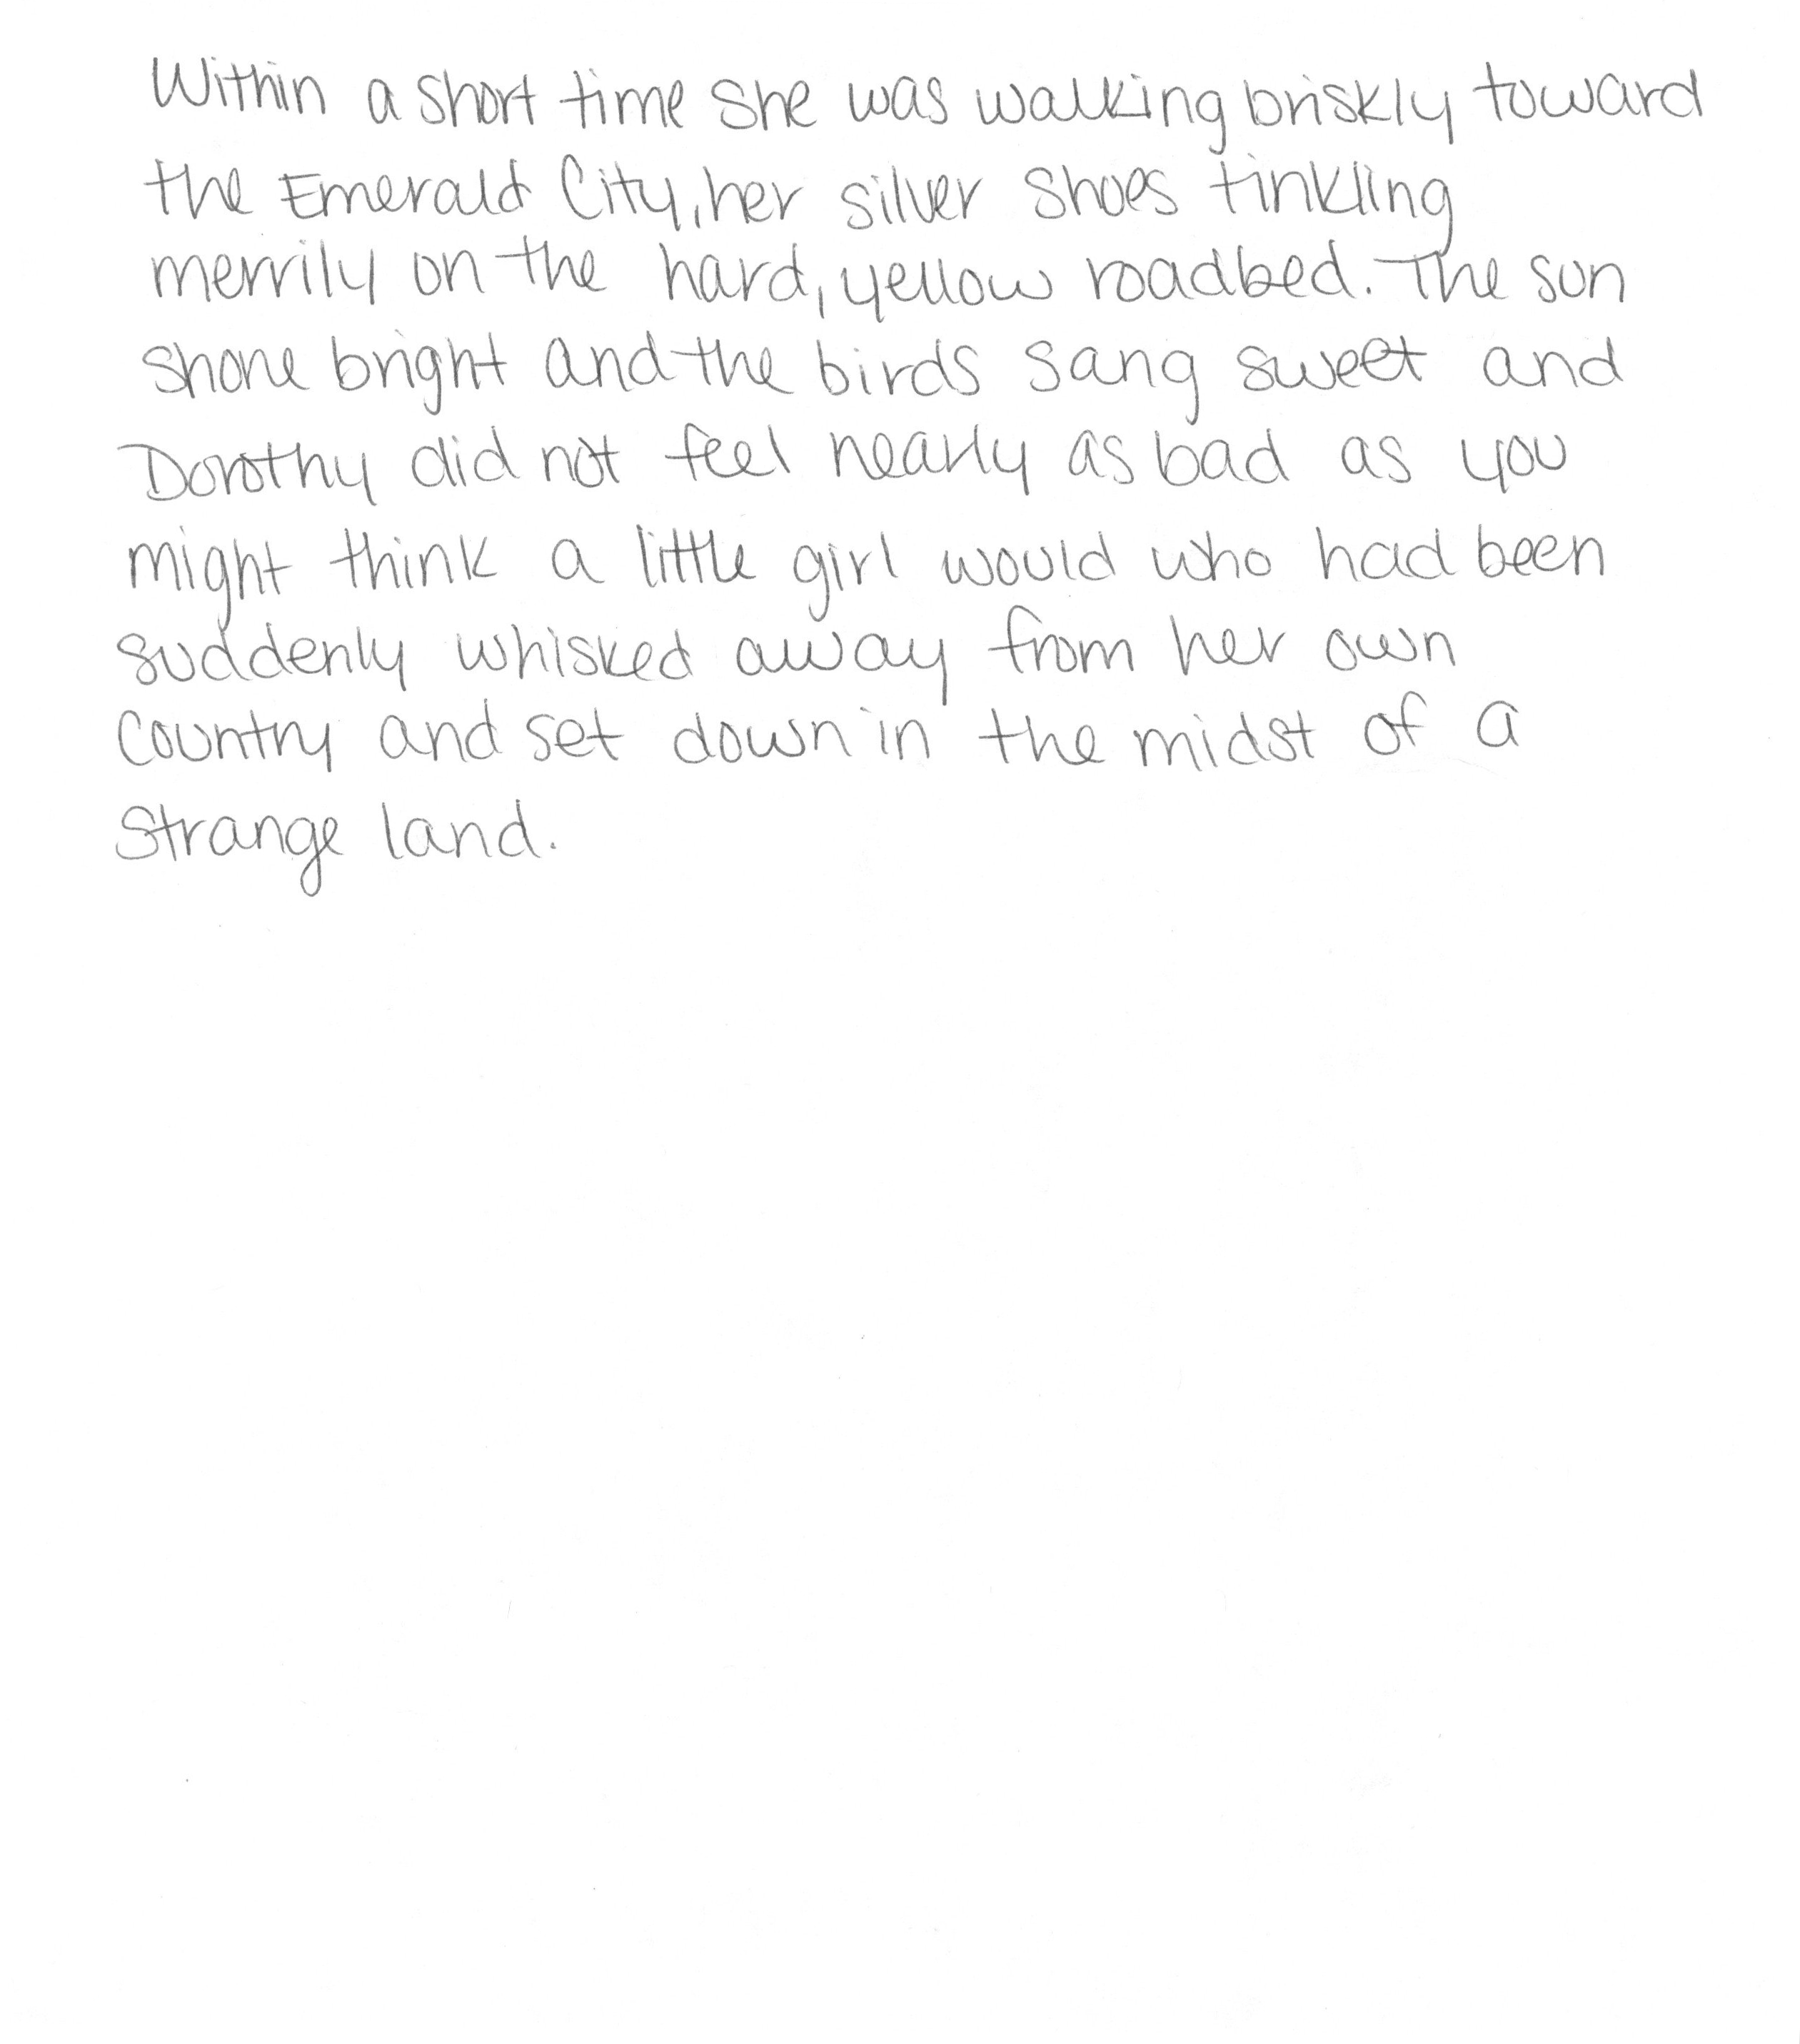 Within a short time she was walking briskly toward
the Emerald City, her silver shoes tinkling
merrily on the hard, yellow roadbed. The sun
shone bright and the birds sang sweet and
Dorothy did not feel nearly as bad as you
might think a little girl would who had been
suddenly whisked away from her own
country and set down in the midst of a
strange land.